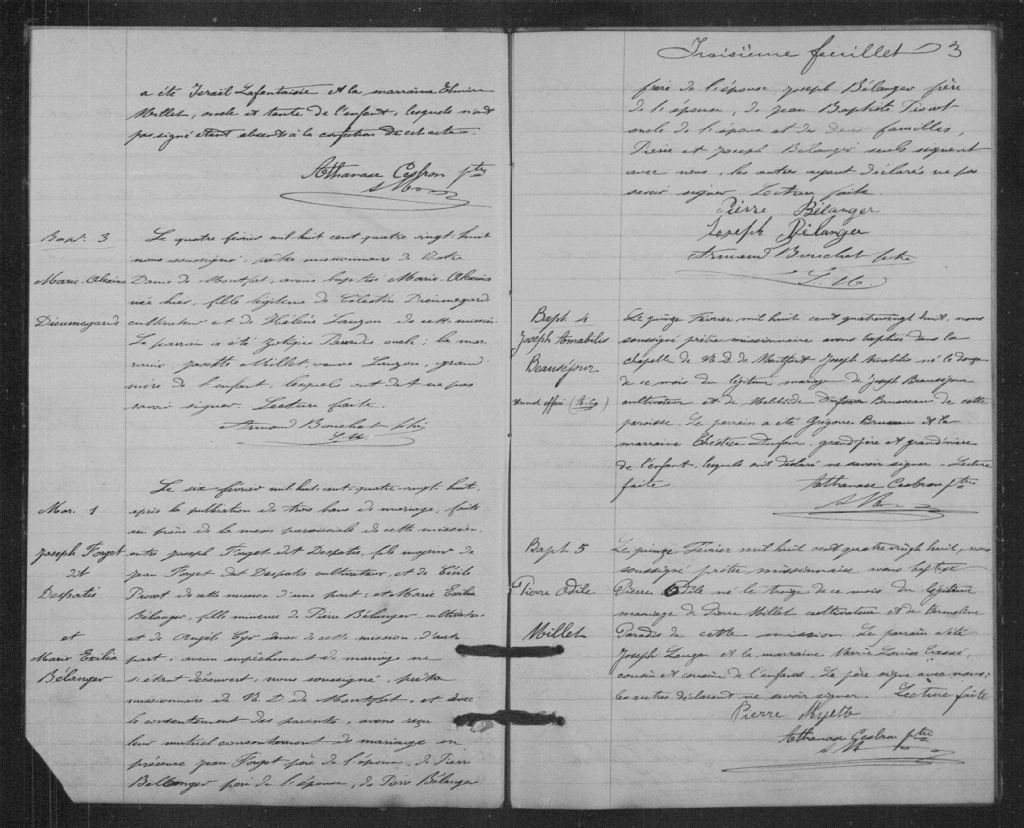 a été Israël Lafantaisie et la marraine Elmire
Millet, oncle et tante de l'enfant, lesquels n'ont
pas signé étant absents à la confection de cet acte.
Athanase Cesbron ptre
Bapt. 3
Marie-Alexina
Dieumegard
Le quatre février mil huit cent quatre vingt huit
nous soussigné, prêtre missionnaire de Notre
Dame de Montfort, avons baptisé Marie-Alexina
née hier, fille légitime de Célestin Dieumegard
cultivateur et de Hélène Lauzon de cette mission.
Le parrain a été Paradis oncle; la mar
raine Millet, veuve Lauzon, grand
mère de l'enfant, lesquels ont dit ne pas
savoir signer. Lecture faite.
Armand Bouchet ptre
S.M.
Mar. 1
Joseph Forget
dit
Despatis
et
Marie Exilia
Bélanger
Le six février mil huit cent quatre-vingt huit,
après la publication de trois bans de mariage, faite
au prône de la messe paroissiale de cette mission
entre Joseph Forget dit Despatis, fils majeur de
Jean Forget dit Despatis cultivateur, et de Cécile
de cette mission d'une part; et Marie Exilia
Bélanger, fille mineure de Pierre Bélanger cultivateur
et de de cette mission d'autre
part; aucun empêchement de mariage ne
s'étant découvert, nous soussigné, prêtre
missionnaire de N. D. de Montfort, et avec
le consentement des parents, avons reçu
leur mutuel consentement de mariage en
présence Jean Forget père de l'époux, de Pierre
Bellanger père de l'épouse, de Pierre Bélanger
Troisième feuillet 3
frère de l'épouse Joseph Bélanger frère
de l'épouse, de Jean Baptiste
oncle de l'époux et de deux familles,
Pierre et Joseph Bélanger seuls signent
avec nous, les autres ayant déclarés ne pas
savoir signer. Lecture faite
Pierre Bélanger
Joseph Bélanger
Armand Bouchet ptre
S. M.
Baph 4
Joseph Amabilis
Beauséjour
Le quinze Février mil huit cent quatrevingt huit, nous
soussigné prêtre missionnaire avons baptisé dans la
chapelle de N. D. de Montfort Joseph Amabilis né le douze
de ce mois du légitime mariage de Joseph Beauséjour
cultivateur et de Brusseau de cette
paroisse. Le parrain a été Grégoire Brusseau et la
marraine Dufour, grandpère et grandmère
de l'enfant, lesquels ont déclaré ne savoir signer. Lecture
faite
Athanase Cesbron ptre
Baph 5
Pierre Odile
Millet
Le quinze Février mil huit cent quatre vingt huit, nous
soussigné prêtre missionnaire avons baptisé
Pierre Odile né le treize de ce mois du légitime
mariage de Pierre Millet cultivateur et de
Paradis de cette mission. Le parrain a été
Joseph Lauzon et la marraine Marie Louise Lassé,
cousin et cousine de l'enfant. Le père signe avec nous;
les autres déclarent ne savoir signer. Lecture faite
Pierre Myette
Athanase Cesbron ptre